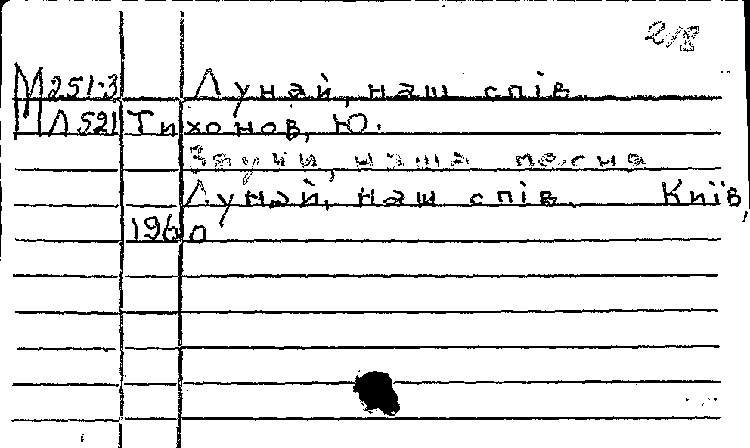 2/8
М251.3 Лунай, наш спів
Л521 Тихонов, Ю.
Звучи, наша песня
Лунай, наш спів. Київ,
1960